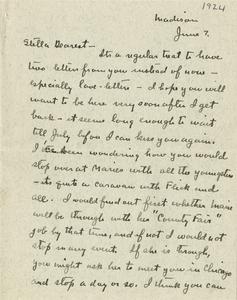 1924
Madison
June 7.
Stella Dearest –
Its a regular treat to have
two letters from you instead of none –
especially love-letters – I hope you will
want to be here very soon after I get
back – it seems long enough to wait
till July before I can kiss you again.
I been wondering how you would
stop over at Maries with all the youngsters
– its quite a Caravan with Fleck and
all. I would find out first whether Marie
will be through with his "County Fair"
job by that time, and if not I would not
stop in any event. If she is through,
you might ask her to meet you in Chicago
and stop a day or so. I think you can